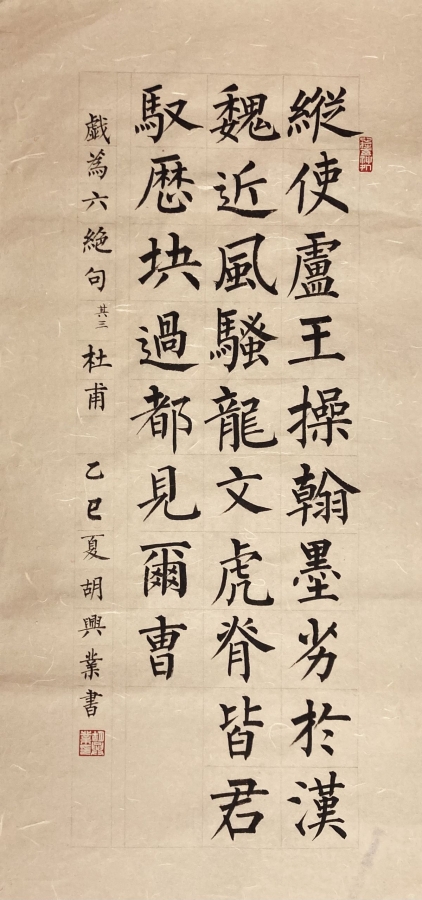 縱使盧王操翰墨劣於漢
魏近風騷龍文虎脊皆君
馭歷块過都見爾曺
戯為六絶句 其三 杜甫 乙巳夏胡興業書